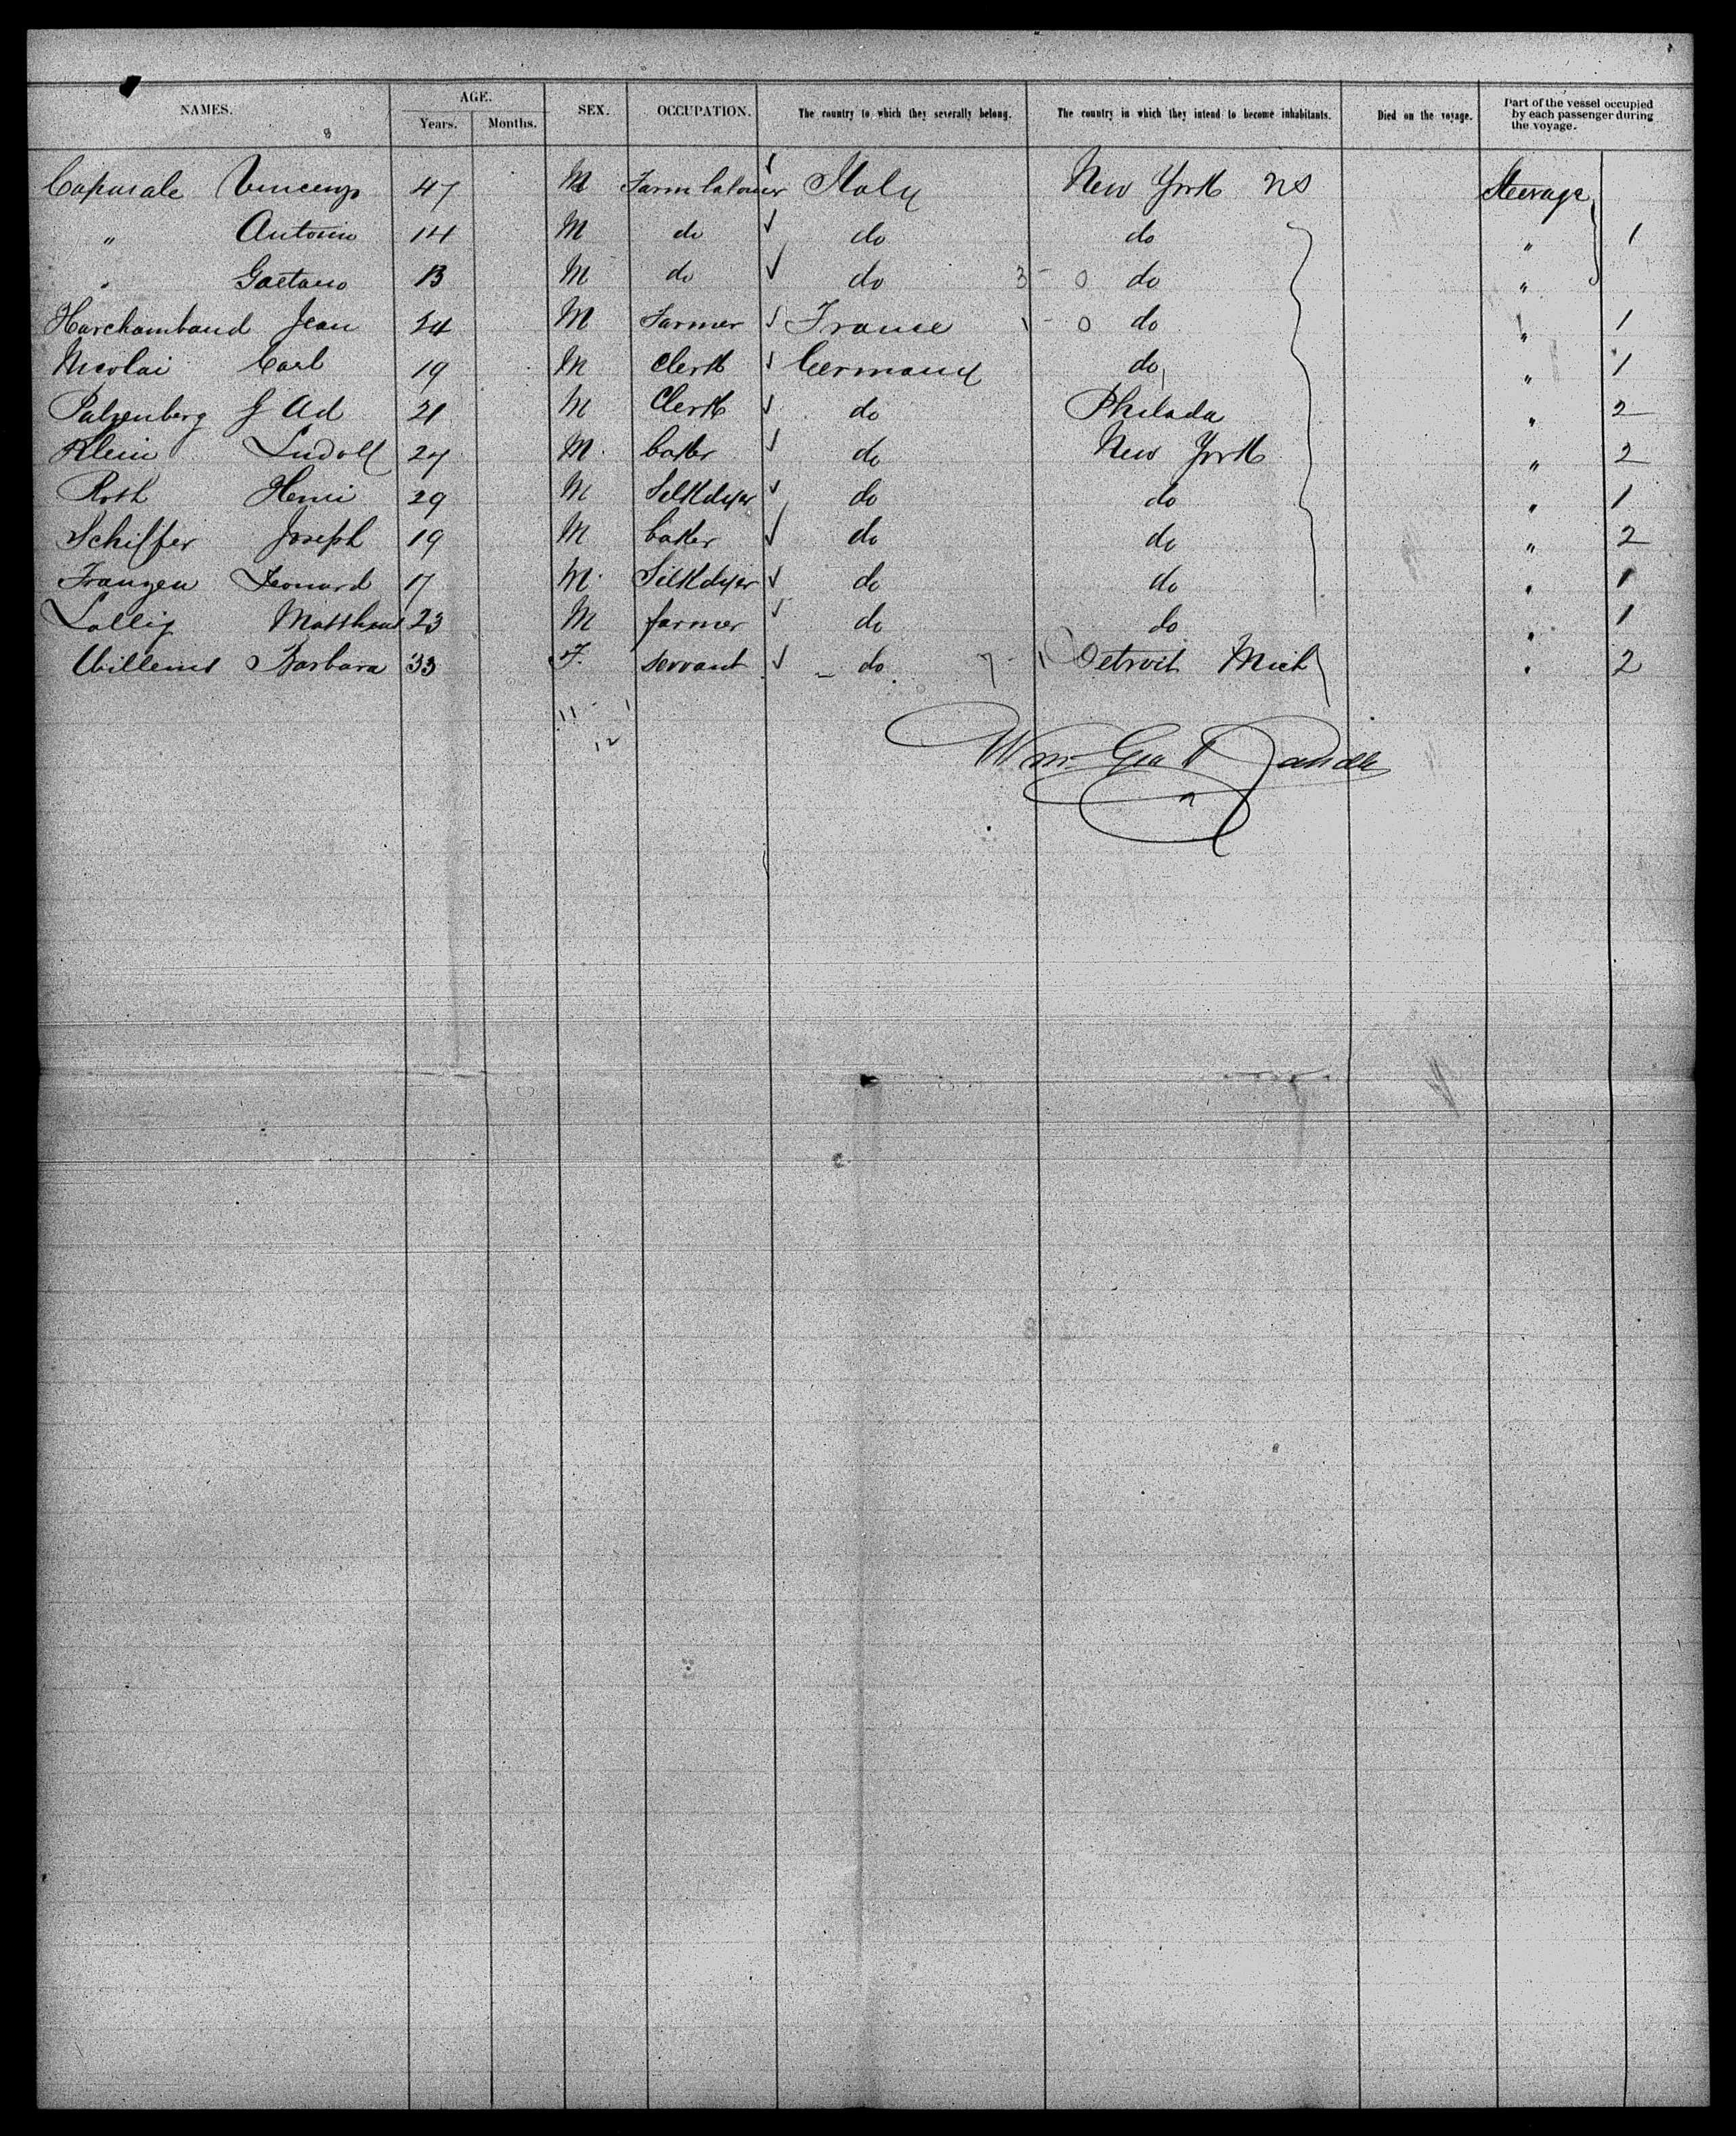 NAMES. AGE. SEX. OCCUPATION. The country to which they severally belong. The country in which they intend to become inhabitants. Died on the voyage. Part of the vessel occupied by each passenger during the voyage.
Years. Months.
Caporale Vincenzo 47 M Farm labourer Italy New York ns Steerage
" Antonio 14 M do do do " 1
" Gaetano 13 M do do 3 - 0 do "
Harchambaud Jean 24 M Farmer France 1 - 0 do " 1
Nicolai Carl 19 M Clerk Germany do " 1
Palzenberg J Ad 21 M Clerk do Philada " 2
Klein Ludolf 27 M. baker do New York " 2
Roth Henri 29 M Silkdyer do do " 1
Schiffer Joseph 19 M baker do do " 2
Franzen Leonard 17 M. Silkdyer do do " 1
Lollig Matthias 23 M farmer do do " 1
Willems Barbara 33 F. servant do 7 - 1 Detroit Mich " 2
11 - 1
12
Wm Geo